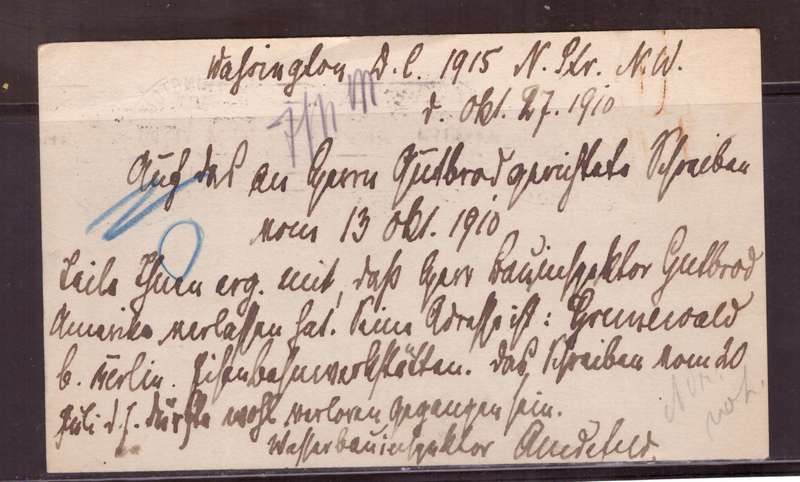 Washington D.C. 1915 N. Str. N.W.
d. Okt. 27. 1910
Auf das an Herrn Gutbrod gerichtete Schreiben
vom 13 Okt. 1910
teile Ihnen erg. mit, daß Herr Bauinspektor Gutbrod
Amerika verlassen hat. Seine Adresse ist: Grunewald
b. Berlin. Eisenbahnwerkstätten. Das Schreiben vom 20
Juli d. J. dürfte wohl verloren gegangen sein.
Wasserbauinspektor